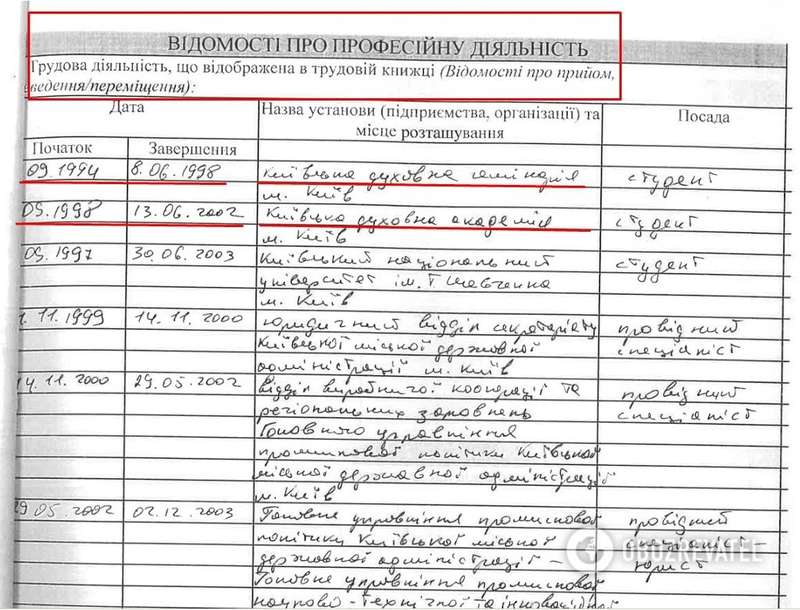 ВІДОМОСТІ ПРО ПРОФЕСІЙНУ ДІЯЛЬНІСТЬ
Трудова діяльність, що відображена в трудовій книжці (Відомості про прийом,
ведення/переміщення):
Дата
Назва установи (підприємства, організації) та
місце розташування
Посада
Початок
Завершення
09.1994 8.06.1998 Київська духовна семінарія студент
м. Київ
09.1998 13.06.2002 Київська духовна академія студент
м. Київ
09.1997 30.06.2003 Київський національний студент
університет ім. Т Шевченка
м. Київ
.11.1999 14.11.2000 юридичний відділ секретаріату провідний
Київської міської державної спеціаліст
адміністрації м. Київ
14.11.2000 29.05.2002 відділ виробничої кооперації та провідний
регіональних замовлень спеціаліст
Головного управління
промислової політики Київської
міської державної адміністрації
м. Київ
29.05.2002 02.12.2003 Головне управління промислової провідний
політики Київської міської спеціаліст
державної адміністрації – юрист
Головне управління промислової
науково-технічної та інноваційної
OBOZREVATEL